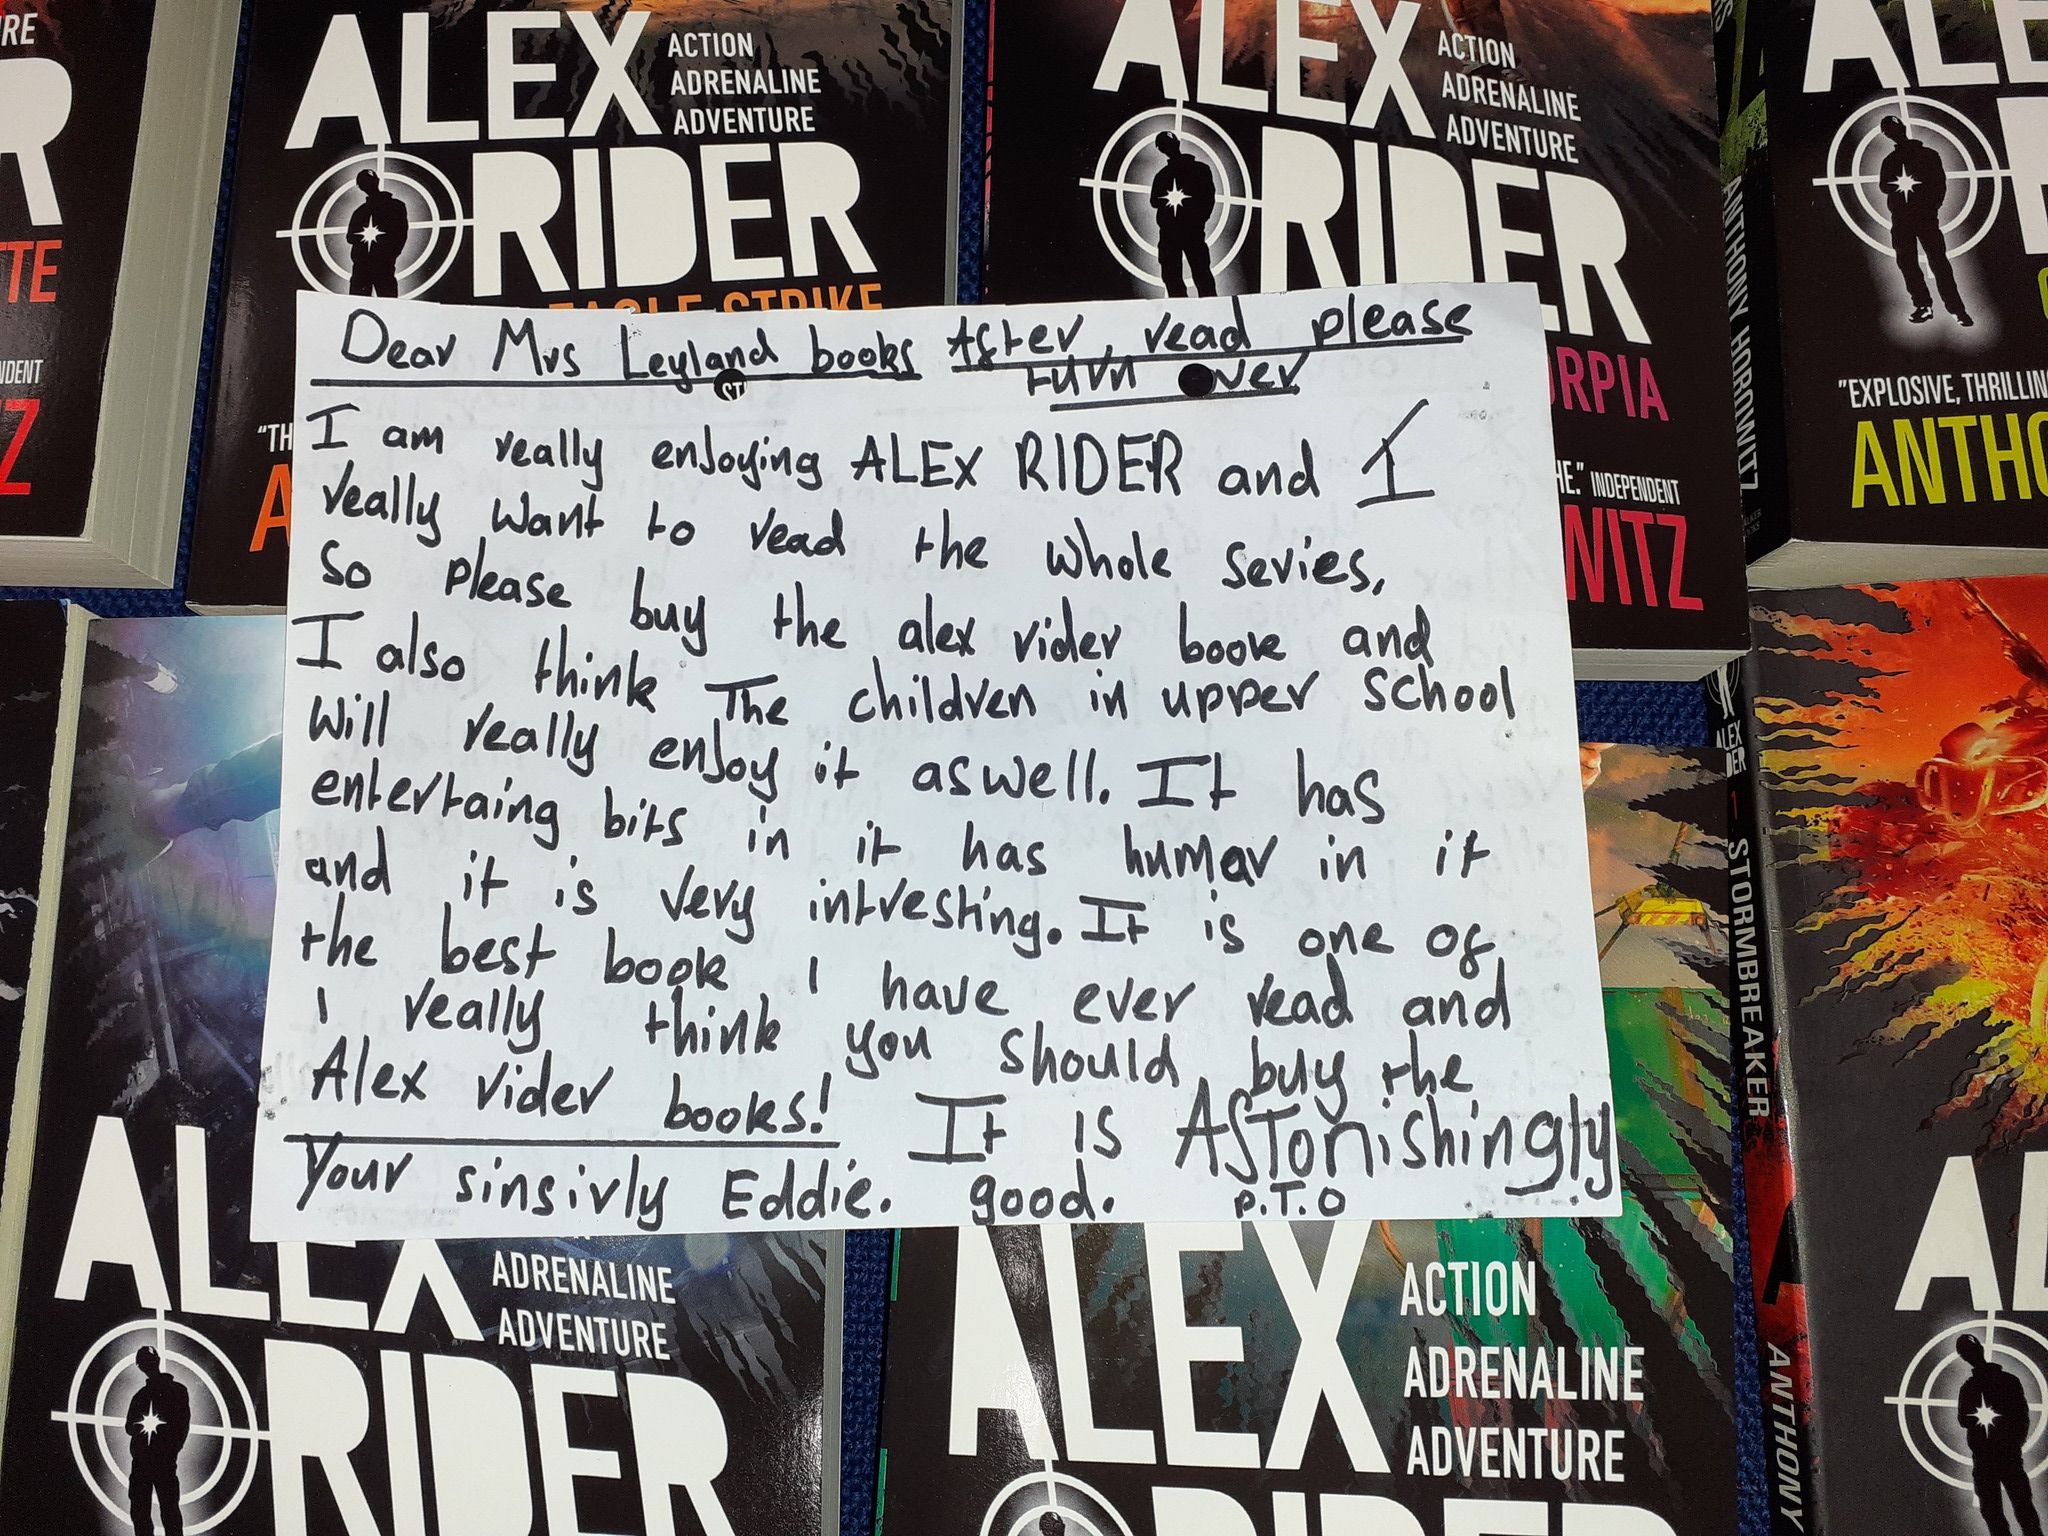 RE
R
TTE
NDENT
TZ
ALEX
ACTION
ADRENALINE
ADVENTURE
RIDER
EAGLE STRIKE
"TH
A
ALEX
ACTION
ADRENALINE
ADVENTURE
RIDER
ORPIA
HE." INDEPENDENT
WITZ
ANTHONY HOROWITZ
WALKER
BOOKS
ALE
"EXPLOSIVE, THRILLIN
ANTHO
Dear Mrs Leyland books After read please
turn over
I am really enjoying ALEX RIDER and I
really want to read the whole series,
so please buy the alex rider book and
I also think The children in upper school
Will really enjoy it aswell. It has
entertaing bits in it has humor in it
and it is very intresting. It is one of
the best book I have ever read and
I really think you should buy the
Alex rider books! It is Astonishingly
Your sinsirly Eddie. good. P.T.O
ALEX
ADRENALINE
ADVENTURE
RIDER
ALEX
ACTION
ADRENALINE
ADVENTURE
RIDER
ALEX
DER
1
STORMBREAKER
ANTHONY
AL